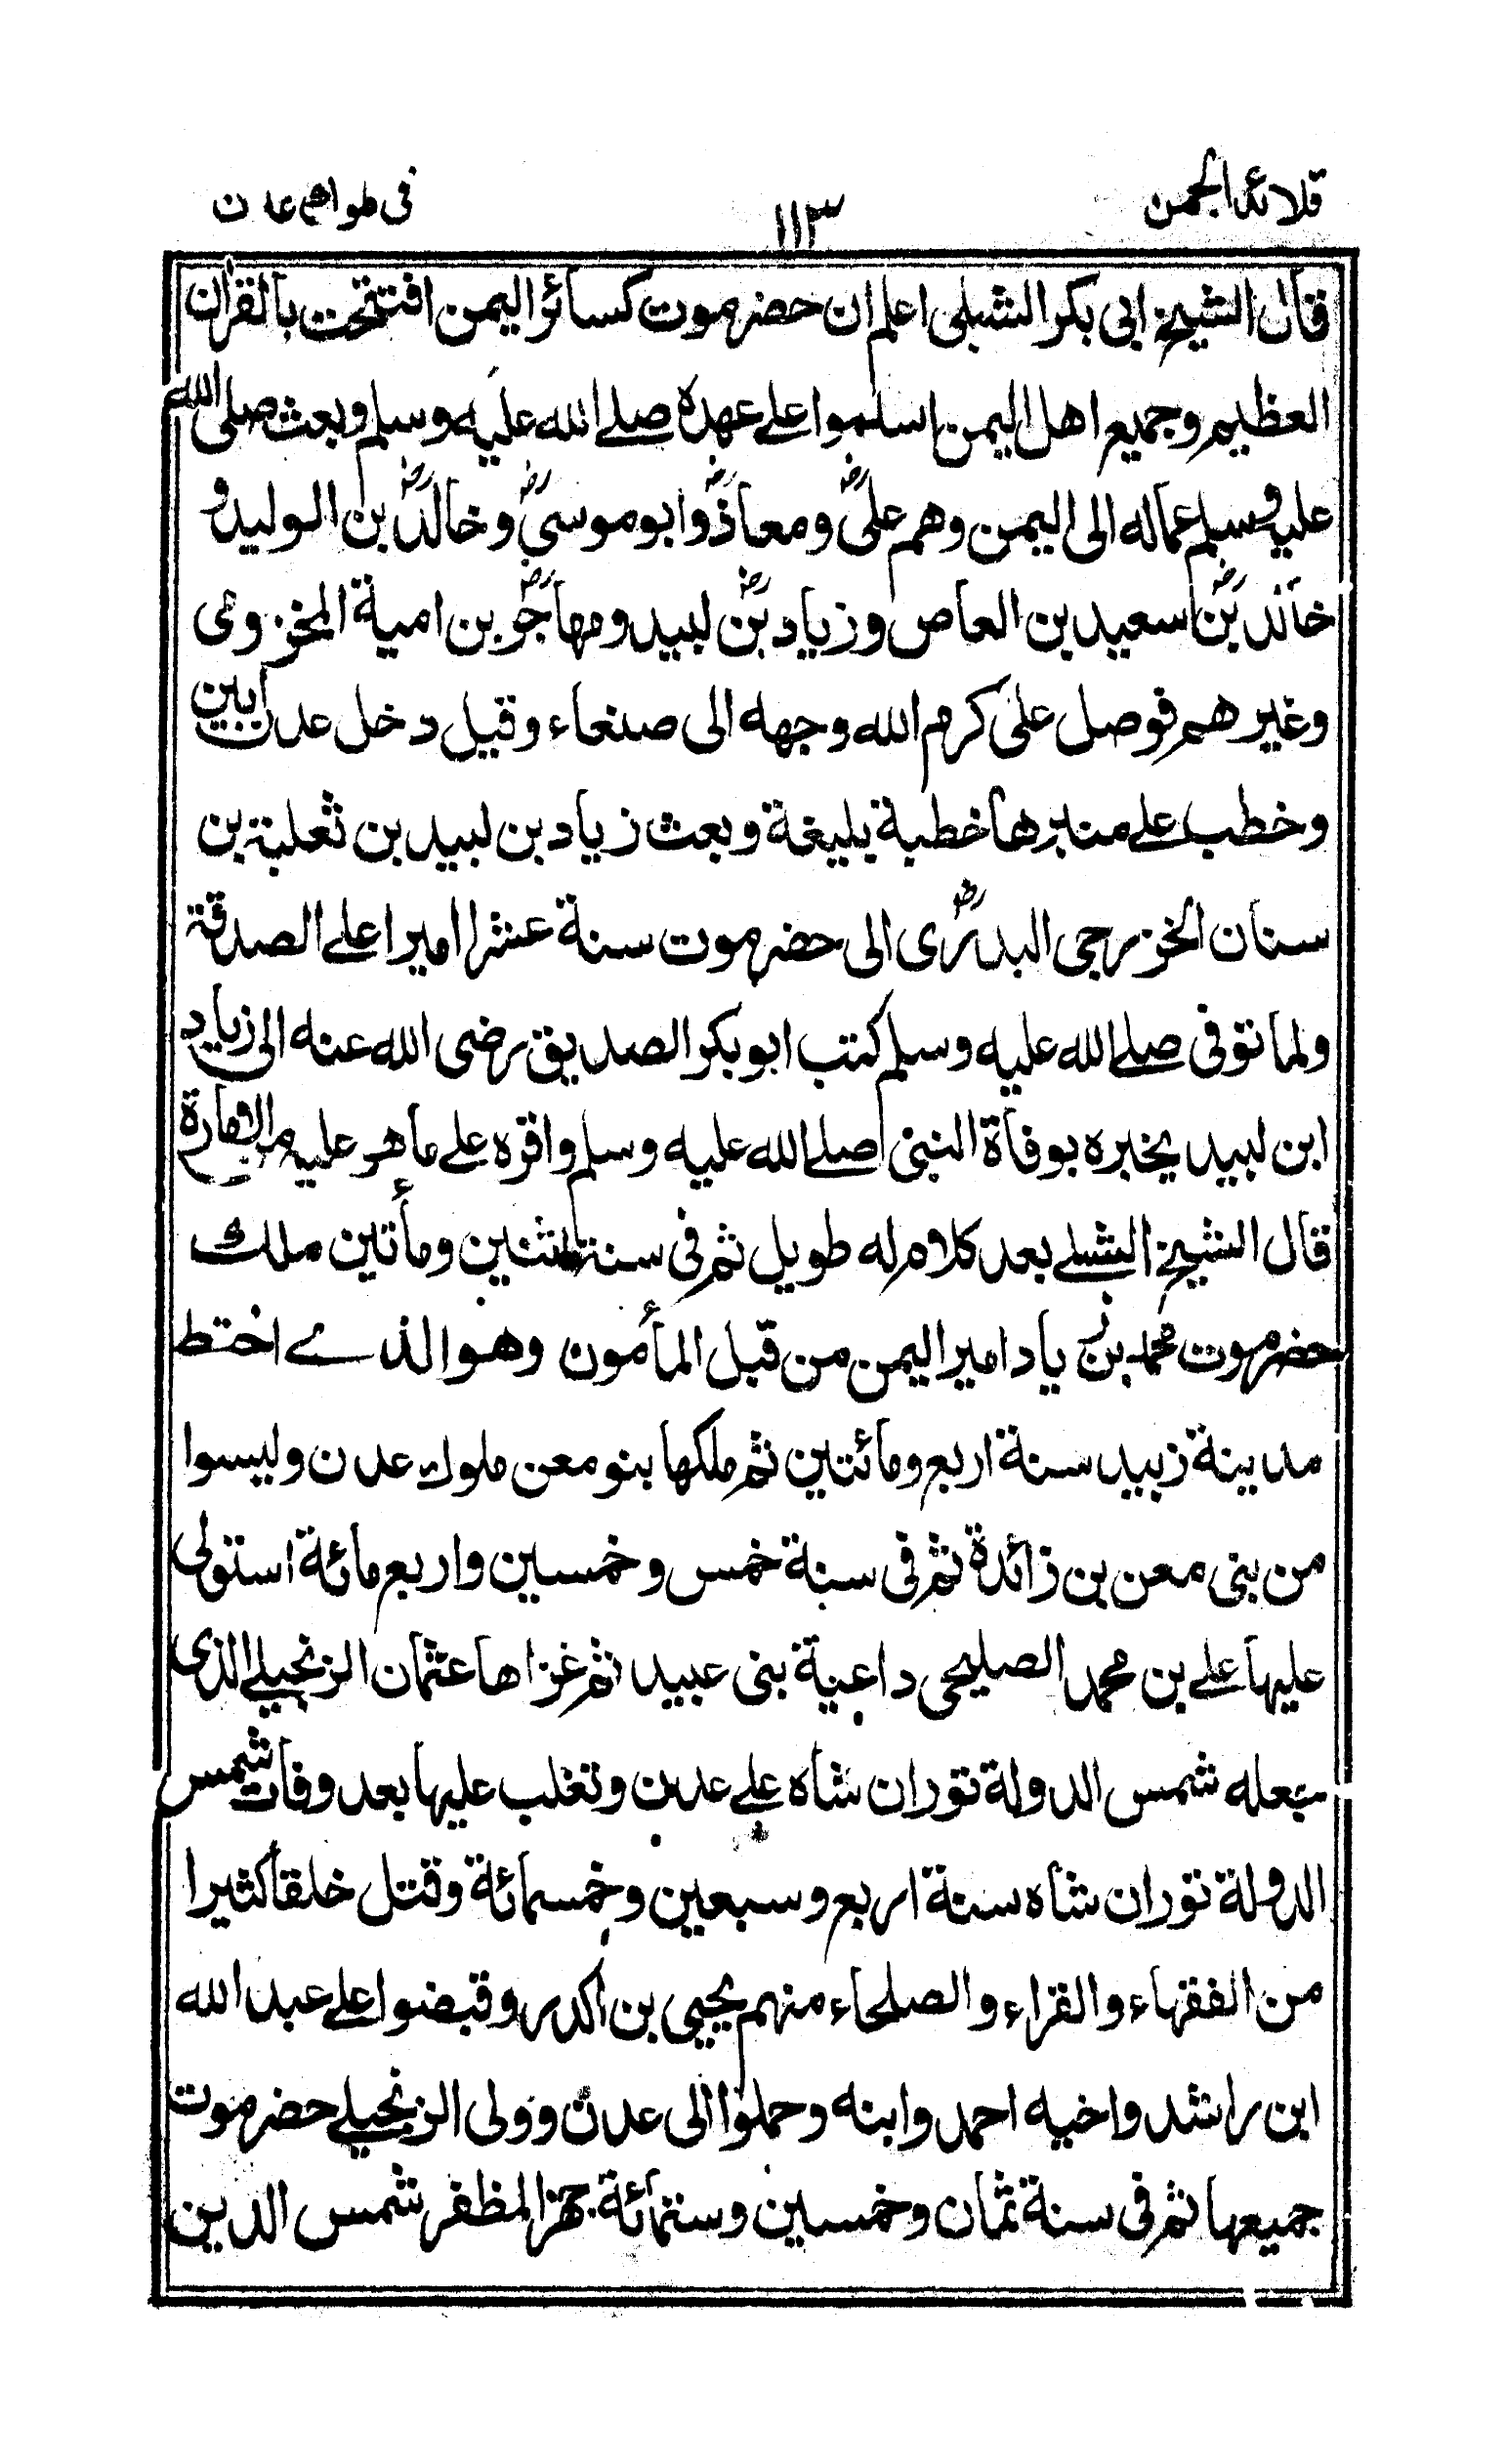 قلائد الجمن
١١٣
فى طواهى عدن
قال الشيخ ابى بكر الشبلى اعلم ان حضرموت كسائر اليمن افتتحت بالقرآن
العظيم وجميع اهل اليمن اسلموا على عهده صلے الله عليه وسلم وبعث صلى الله
عليه وسلم عماله الى اليمن وهم علىؓ ومعاذؓ وابو موسىؓ وخالدؓ بن الوليد و
خالد بنؓ سعيد بن العاص وزياد بنؓ لبيد ومهاجرؓ بن امية المخزومى
وغيرهم فوصل على كرم الله وجهه الى صنعاء وقيل دخل عدن ابين
وخطب على منبرها خطبة بليغة وبعث زياد بن لبيد بن ثعلبة بن
سنان الخزرجى البدرىؓ الى حضرموت سنة عشر اميرا على الصدقة
ولما توفى صلے الله عليه وسلم كتب ابو بكر الصديق رضى الله عنه الى زياد
ابن لبيد يخبره بوفاة النبى صلے الله عليه وسلم واقره على ما هو عليه من الامارة
قال الشيخ الشبلے بعد كلام له طويل ثم فى سنة اثنين ومأتين ملك
حضرموت محمد بن زياد امير اليمن من قبل المأمون وهو الذے اختط
مدينة زبيد سنة اربع ومائتين ثم ملكها بنو معن ملوك عدن وليسوا
من بنى معن بن زائدة ثم فى سنة خمس وخمسين واربع مائة استولى
عليها على بن محمد الصليحى داعية بنى عبيد ثم غزاها عثمان الزنجيلے الذى
جعله شمس الدولة توران شاه على عدن وتغلب عليها بعد وفات شمس
الدولة توران شاه سنة اربع وسبعين وخمسمائة وقتل خلقا كثيرا
من الفقهاء والقراء والصلحاء منهم يحيى بن اكدر وقبضوا على عبد الله
ابن راشد واخيه احمد وابنه وحملوا الى عدن وولى الزنجيلے حضرموت
جميعها ثم فى سنة ثمان وخمسين وستمائة جهز المظفر شمس الدين